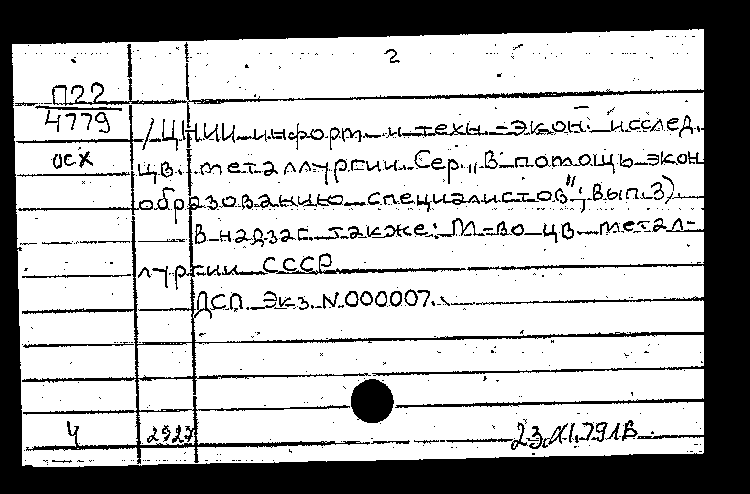 2
П22
4779
осх
/ЦНИИ информ. и техн.-экон. исслед.
цв. металлургии. Сер. „В помощь экон
образованию специалистов"; вып. 3).
В надзаг. также: М-во цв. метал-
лургии СССР
ДСП. Экз. N.000007.
4 2927 23.XI.79